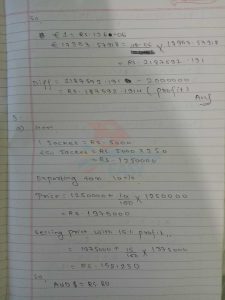 So
€ 1 = RS. 126.06
€ 17353.57918 = 126.06 × 17353.57918
= RS. 2187592.191
Diff = 2187592.191 - 2000000
= RS. 187592.1914 (profit)
Ans
5
a) Soln
1 Jacket = RS. 5000
250 Jacket = RS. 5000 × 250
= RS. 1250000
Exporting tax 10%
Price = 1250000 + 10/100 × 1250000
= RS. 1375000
Selling price with 15% profit,
= 1375000 + 15/100 × 1375000
= RS. 1581250
So,
AUD $ = RS. 80